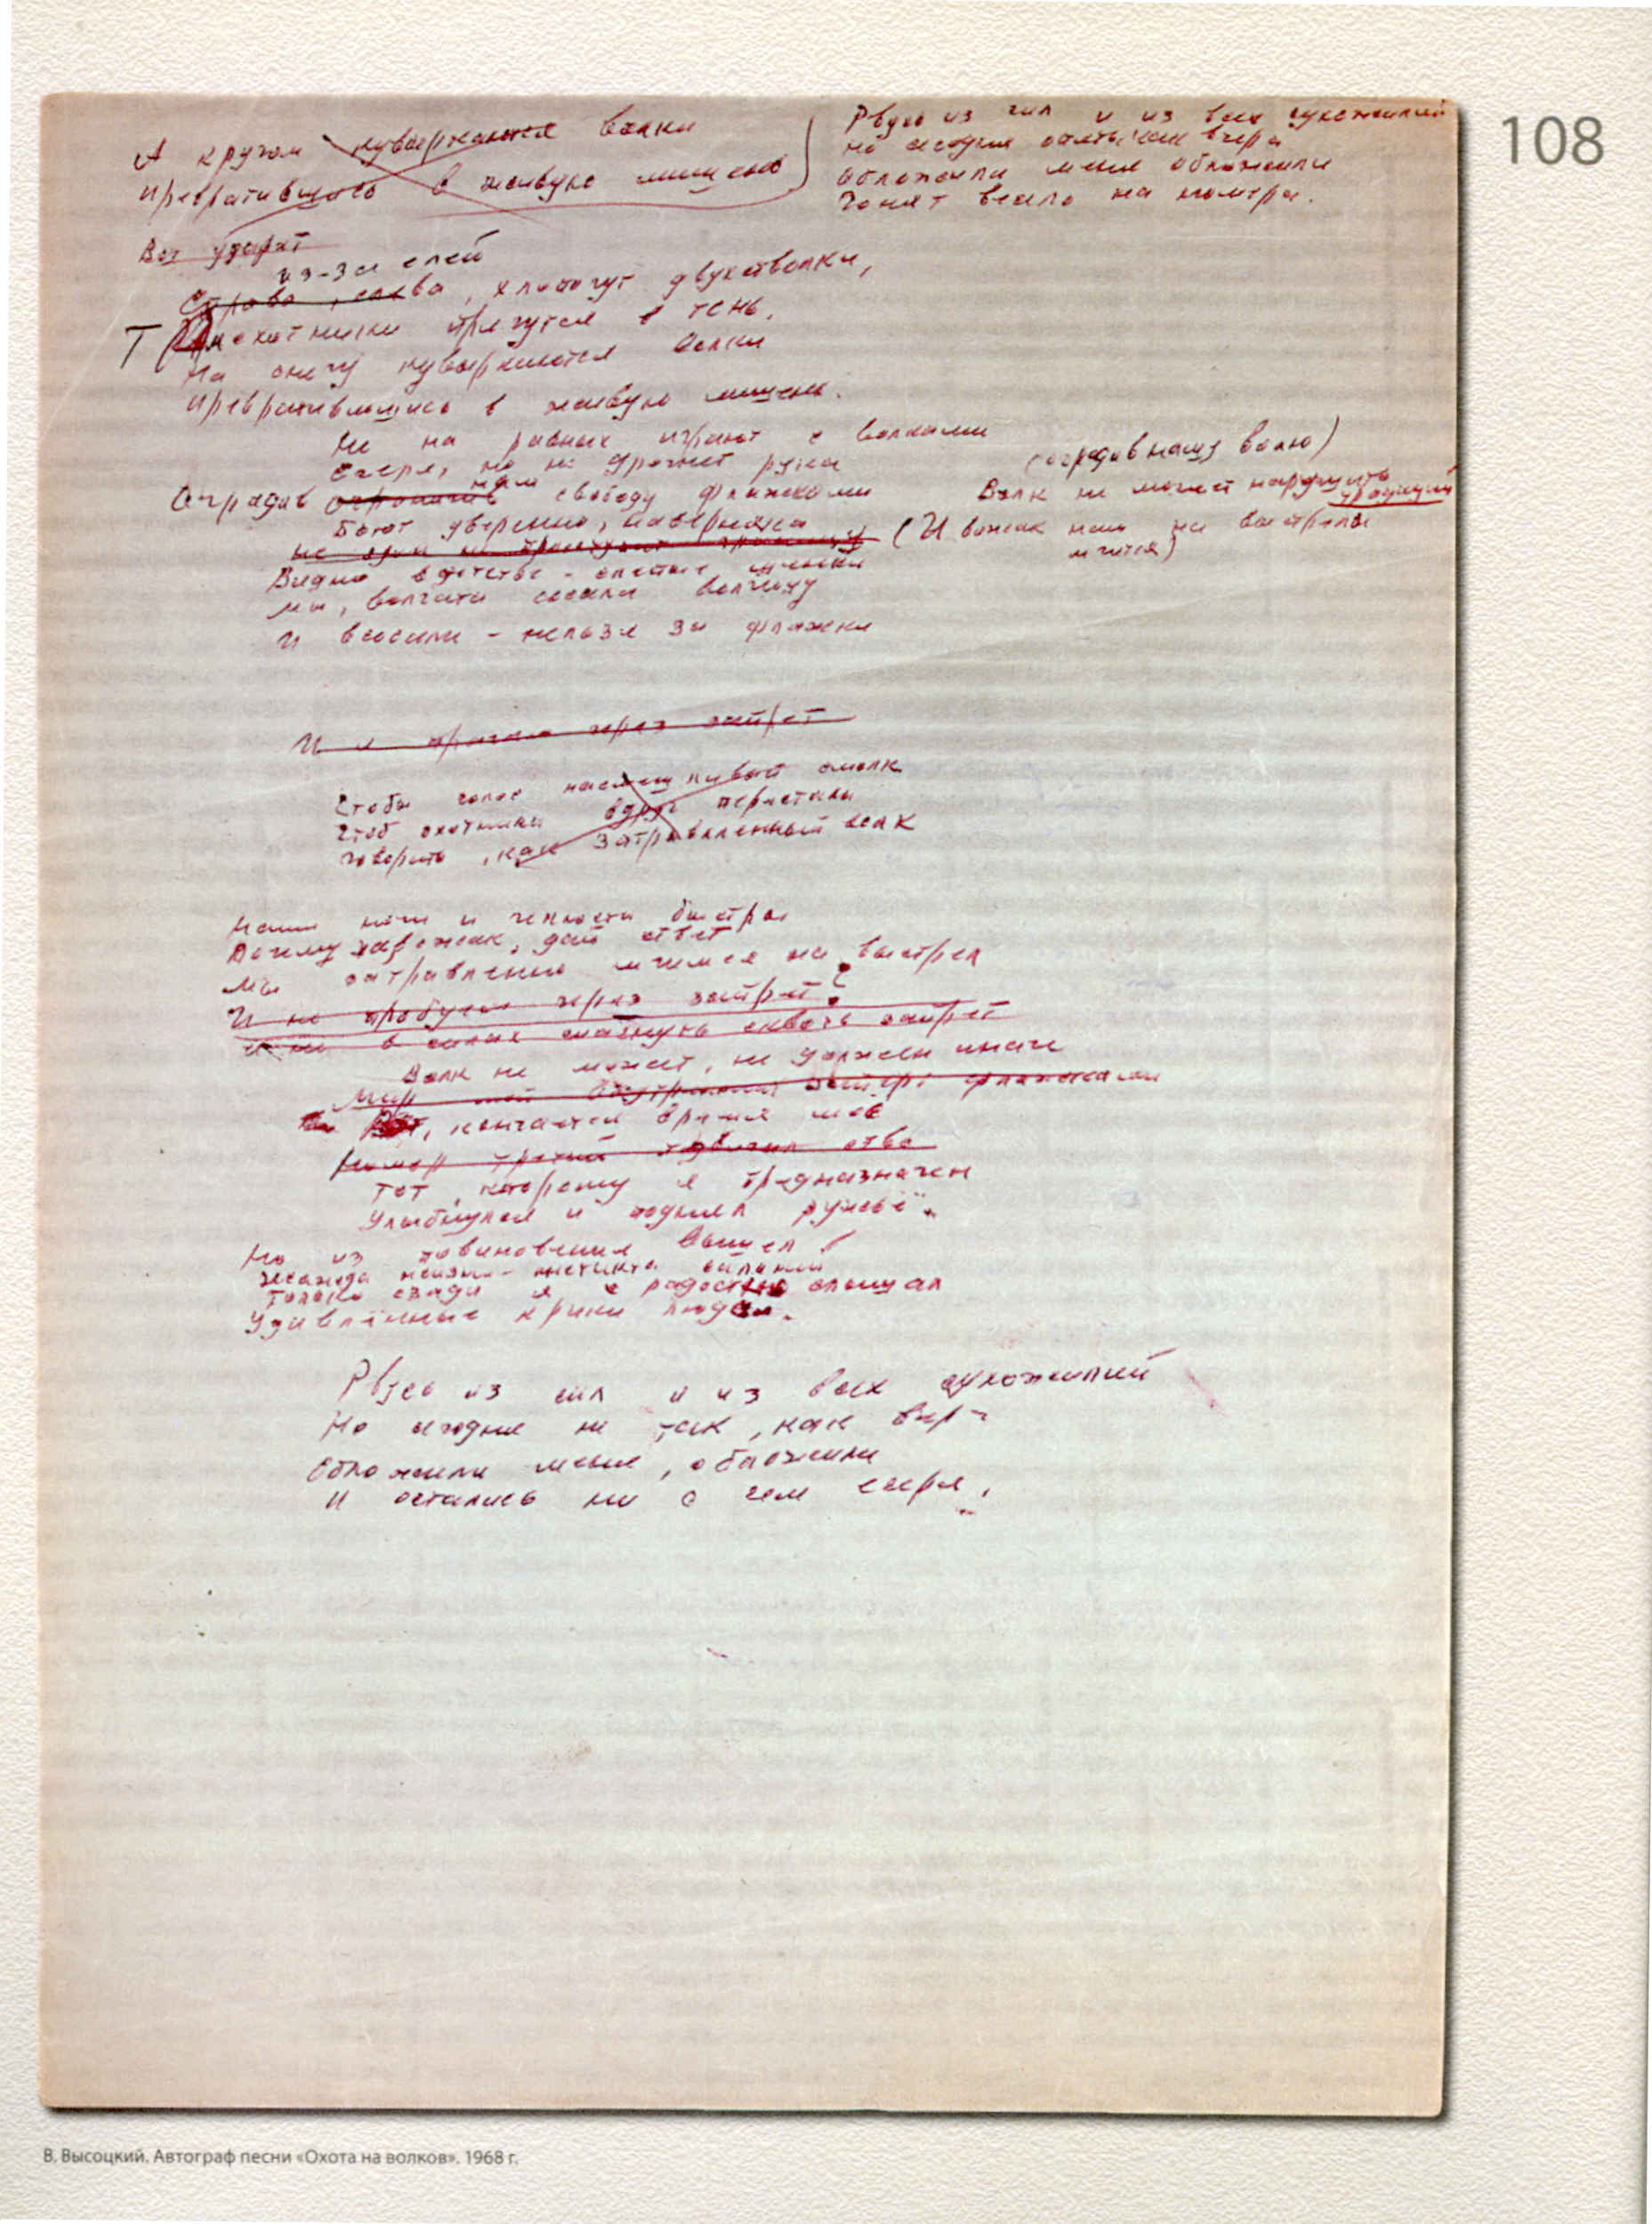 108
А кругом кувыркаются волки
превратившись в живую мишень
Рвусь из сил и из всех сухожилий
но сегодня опять как вчера
обложили меня обложили
Гонят весело на номера.
Вот ударят
из-за елей
Справа, слева, хлопочут двухстволки,
Там охотники прячутся в тень,
На снегу кувыркаются волки
превратившись в живую мишень.
Не на равных играют с волками
Егеря, но не дрогнет рука
Оградив нам свободу флажками
Бьют уверенно, наверняка
(оградив нашу волю)
Волк не может нарушить традиций
(И вожак наш на выстрелы
мчится)
Видно в детстве - слепые щенки
мы, волчата сосали волчицу
И всосали - нельзя за флажки
И я прыгаю через запрет
Чтобы голос насмешливый смолк
Чтоб охотники вдруг перестали
Говорить, как затравленный волк
Наши ноги и челюсти быстры
Почему же вожак, дай ответ
Мы затравленно мчимся на выстрел
И не пробуем через запрет?
в силах махнуть сквозь запрет
Волк не может, не должен иначе
Мир мой внутренний заперт флажками
Вот, кончается время моё
Номер третий
Тот, которому я предназначен
Улыбнулся и поднял ружьё.
Но из повиновения вышел
Жажда жизни - инстинкта сильней
Только сзади я с радостью слышал
Удивлённые крики людей.
Рвусь из сил и из всех сухожилий
Но сегодня не так, как вчера
Обложили меня, обложили
И остались ни с чем егеря.
В. Высоцкий. Автограф песни «Охота на волков». 1968 г.